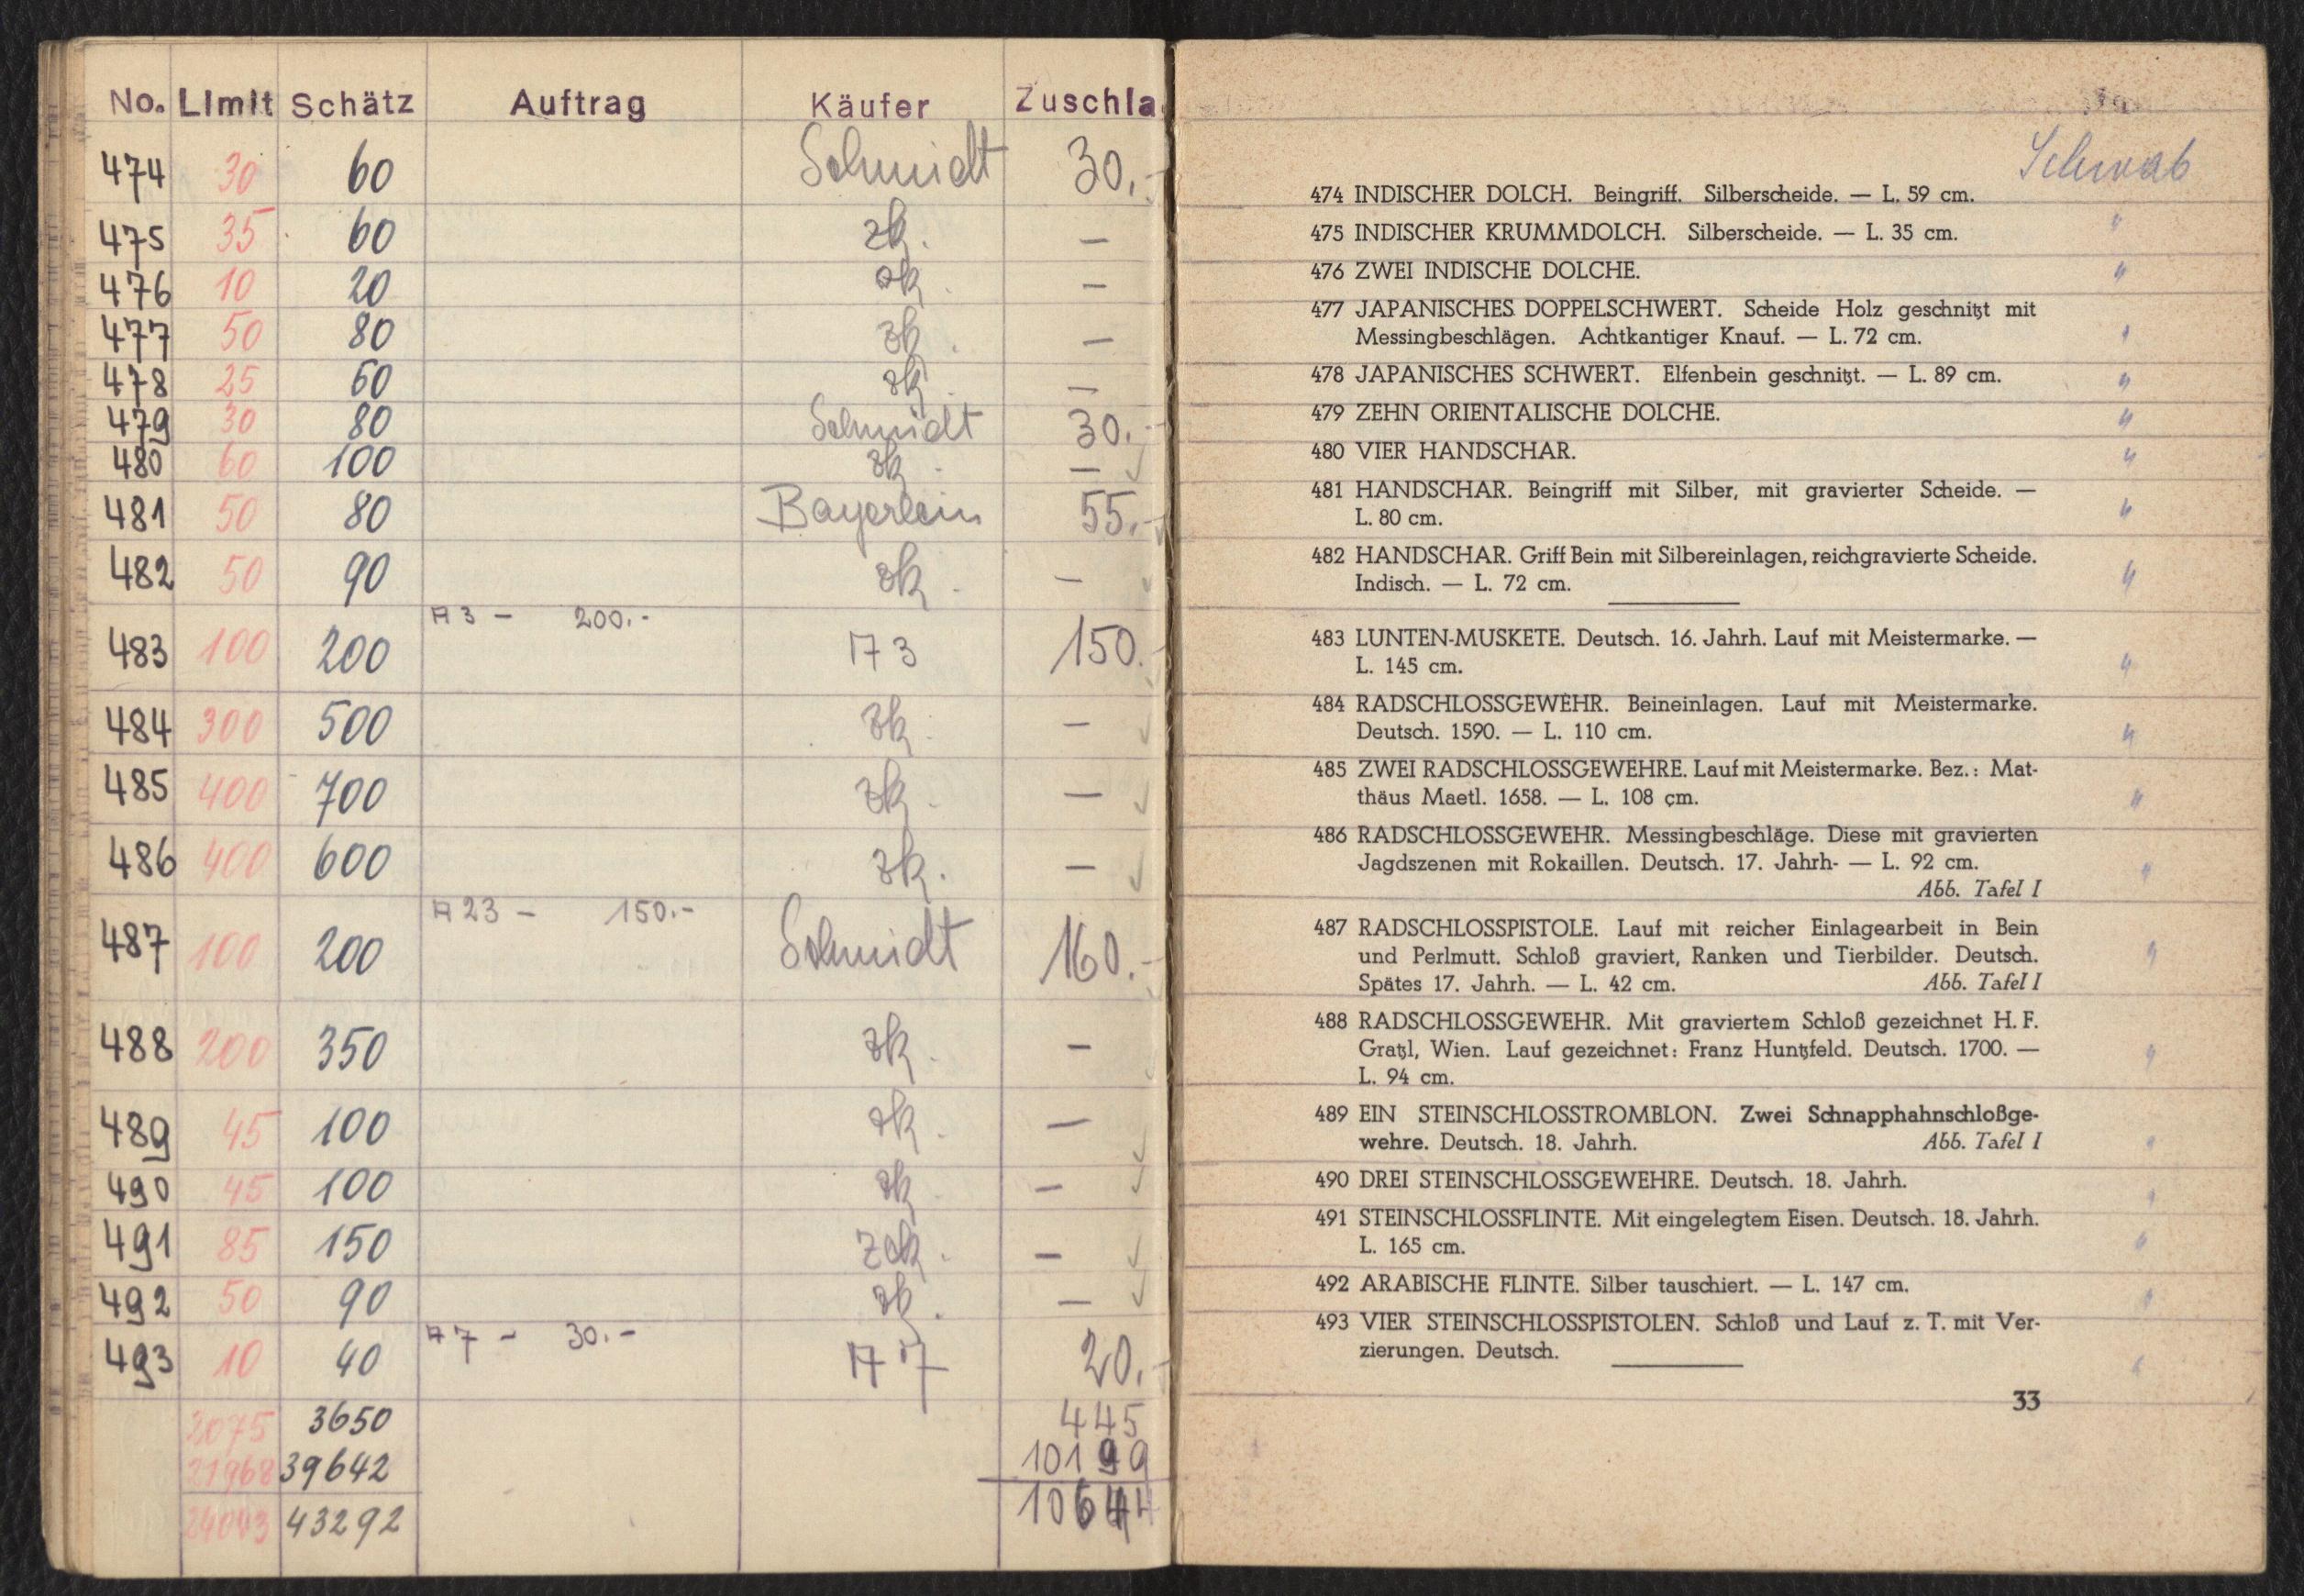 No. Limit Schätz Auftrag Käufer Zuschla
474 30 60 Schmidt 30.-
475 35 60 zk. —
476 10 20 zk. —
477 50 80 zk. —
478 25 60 zk. —
479 30 80 Schmidt 30.-
480 60 100 zk. —
481 50 80 Bayerlein 55.-
482 50 90 zk. —
A 3 - 200.-
483 100 200 A 3 150.-
484 300 500 zk. —
485 400 700 zk. —
486 400 600 zk. —
A 23 - 150.-
487 100 200 Schmidt 160.-
488 200 350 zk. —
489 45 100 zk. —
490 45 100 zk. —
491 85 150 zck. —
492 50 90 zk. —
A 7 - 30.-
493 10 40 A 7 20.-
2075 3650 445
21968 39642 10199
43292 10644
Schwab
474 INDISCHER DOLCH. Beingriff. Silberscheide. — L. 59 cm.
475 INDISCHER KRUMMDOLCH. Silberscheide. — L. 35 cm. "
476 ZWEI INDISCHE DOLCHE. "
477 JAPANISCHES DOPPELSCHWERT. Scheide Holz geschnitzt mit
Messingbeschlägen. Achtkantiger Knauf. — L. 72 cm. "
478 JAPANISCHES SCHWERT. Elfenbein geschnitzt. — L. 89 cm. "
479 ZEHN ORIENTALISCHE DOLCHE. "
480 VIER HANDSCHAR. "
481 HANDSCHAR. Beingriff mit Silber, mit gravierter Scheide. —
L. 80 cm. "
482 HANDSCHAR. Griff Bein mit Silbereinlagen, reichgravierte Scheide.
Indisch. — L. 72 cm. "
483 LUNTEN-MUSKETE. Deutsch. 16. Jahrh. Lauf mit Meistermarke. —
L. 145 cm. "
484 RADSCHLOSSGEWEHR. Beineinlagen. Lauf mit Meistermarke.
Deutsch. 1590. — L. 110 cm. "
485 ZWEI RADSCHLOSSGEWEHRE. Lauf mit Meistermarke. Bez.: Mat-
thäus Maetl. 1658. — L. 108 cm. "
486 RADSCHLOSSGEWEHR. Messingbeschläge. Diese mit gravierten
Jagdszenen mit Rokaillen. Deutsch. 17. Jahrh- — L. 92 cm. "
Abb. Tafel I
487 RADSCHLOSSPISTOLE. Lauf mit reicher Einlagearbeit in Bein
und Perlmutt. Schloß graviert, Ranken und Tierbilder. Deutsch. "
Spätes 17. Jahrh. — L. 42 cm. Abb. Tafel I
488 RADSCHLOSSGEWEHR. Mit graviertem Schloß gezeichnet H. F.
Gratzl, Wien. Lauf gezeichnet: Franz Huntzfeld. Deutsch. 1700. — "
L. 94 cm.
489 EIN STEINSCHLOSSTROMBLON. Zwei Schnapphahnschloßge-
wehre. Deutsch. 18. Jahrh. Abb. Tafel I "
490 DREI STEINSCHLOSSGEWEHRE. Deutsch. 18. Jahrh. "
491 STEINSCHLOSSFLINTE. Mit eingelegtem Eisen. Deutsch. 18. Jahrh.
L. 165 cm. "
492 ARABISCHE FLINTE. Silber tauschiert. — L. 147 cm. "
493 VIER STEINSCHLOSSPISTOLEN. Schloß und Lauf z. T. mit Ver-
zierungen. Deutsch. "
33